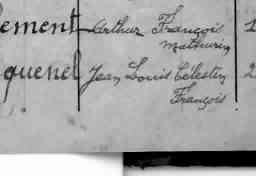 ement Arthur François 1
Mathurin
quenel Jean Louis Célestin 2
François